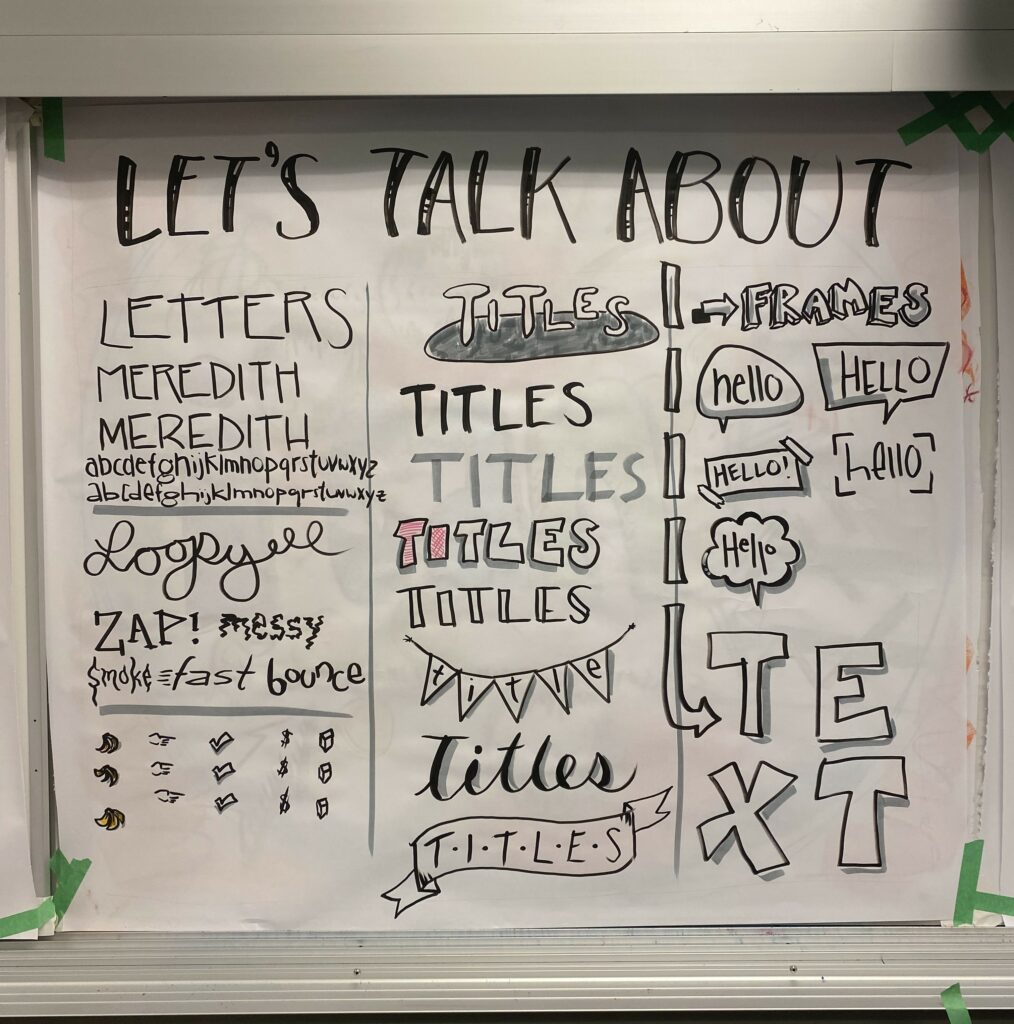 LET'S TALK ABOUT
LETTERS
MEREDITH
MEREDITH
abcdefghijklmnopqrstuvwxyz
abcdefghijklmnopqrstuvwxyz
Loopy
ZAP! messy
smoke fast bounce
$
$
$
TITLES
TITLES
TITLES
TITLES
TITLES
title
Titles
T·I·T·L·E·S
FRAMES
hello HELLO
HELLO! hello
Hello
TE
XT